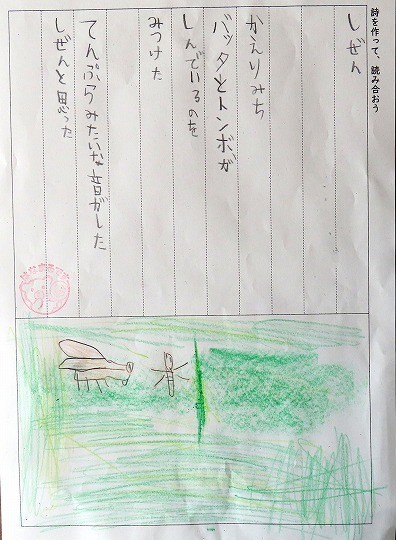 詩を作って、読み合おう
しぜん
かえりみち
バッタとトンボが
しんでいるのを
みつけた
てんぷらみたいな音がした
しぜんと思った